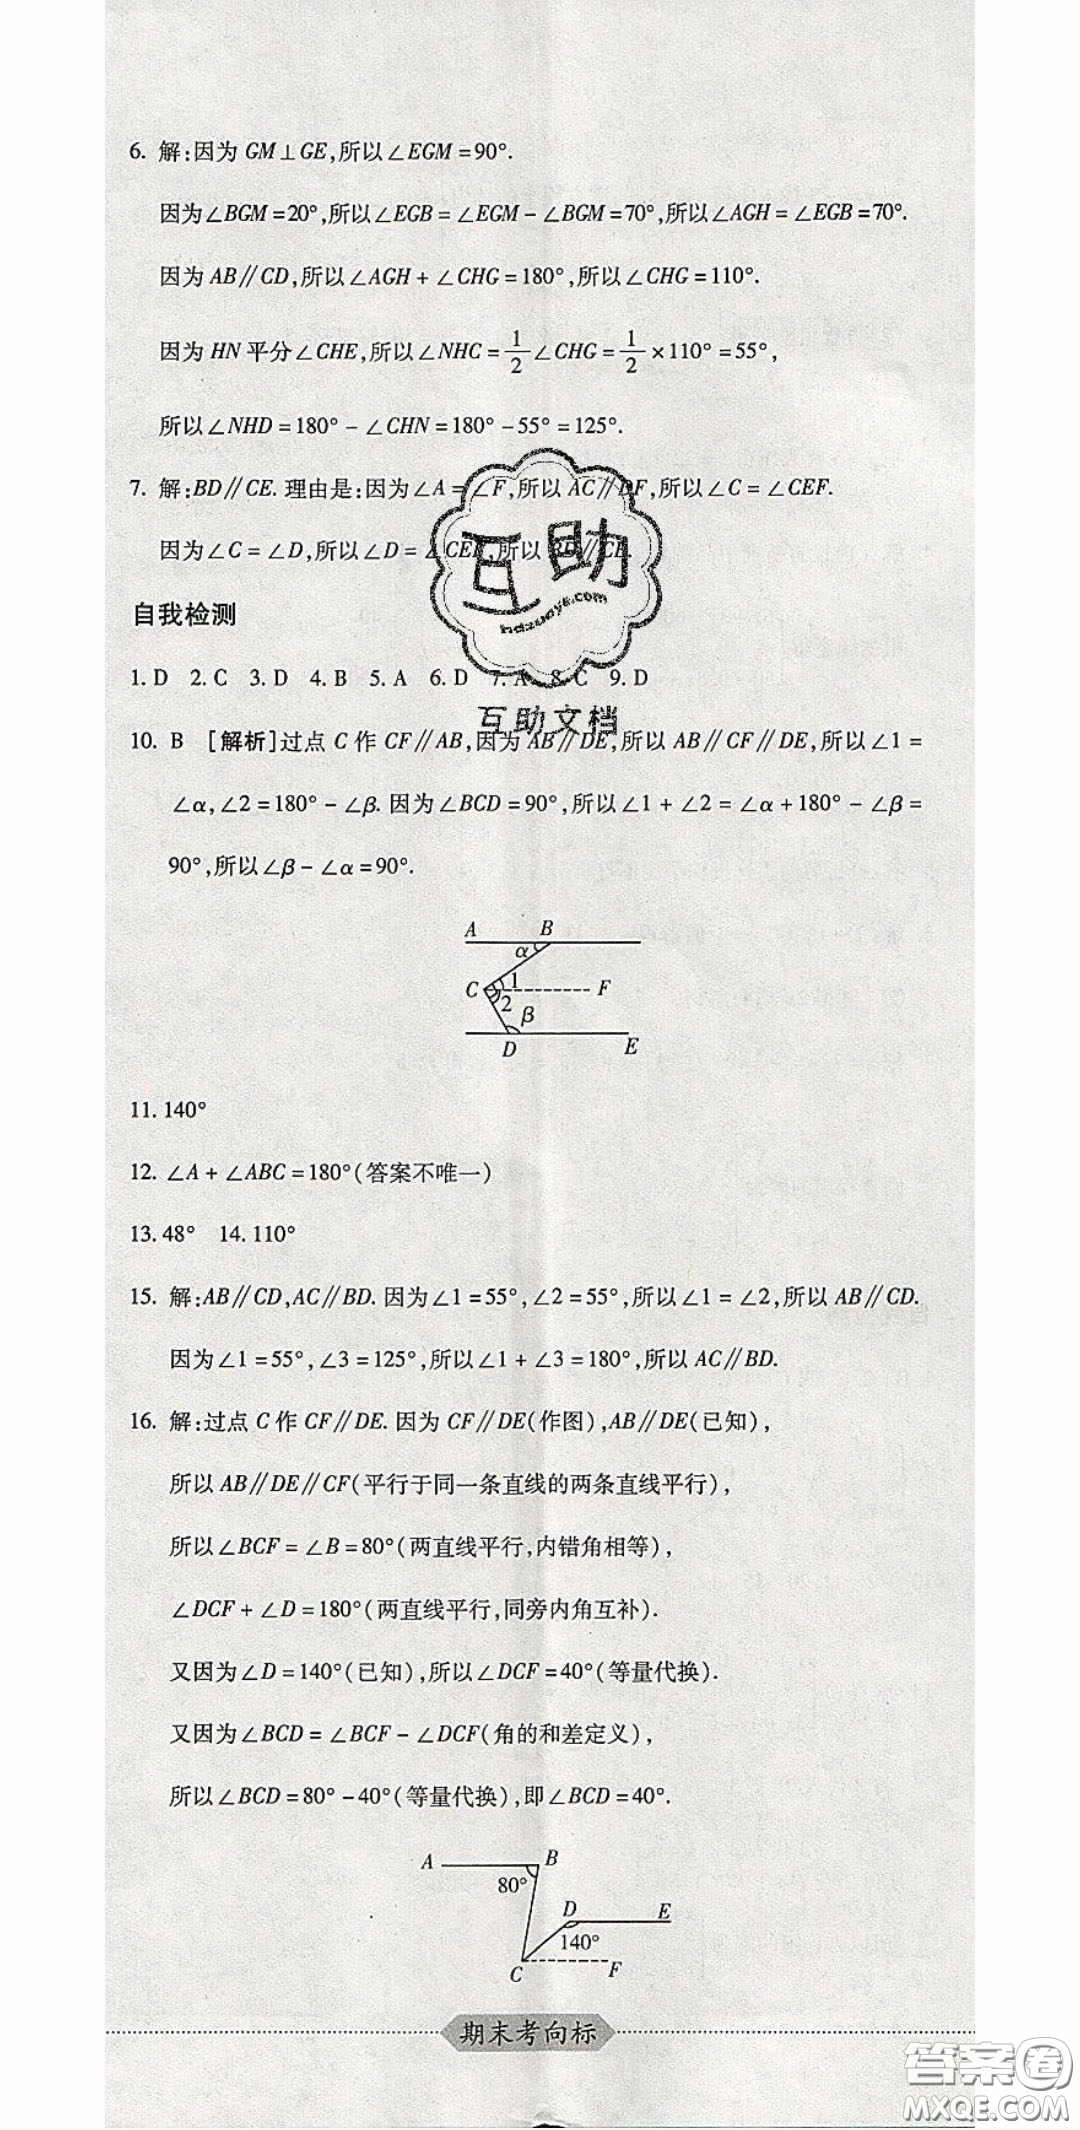 6. 解:因为 GM⊥GE,所以∠EGM=90°.
因为∠BGM=20°,所以∠EGB=∠EGM-∠BGM=70°,所以∠AGH=∠EGB=70°.
因为 AB∥CD,所以∠AGH+∠CHG=180°,所以∠CHG=110°.
因为 HN 平分∠CHE,所以∠NHC=1/2∠CHG=1/2×110°=55°,
所以∠NHD=180°-∠CHN=180°-55°=125°.
7. 解:BD∥CE. 理由是:因为∠A=∠F,所以 AC∥DF,所以∠C=∠CEF.
因为∠C=∠D,所以∠D=∠CEF,所以 BD∥CE.
互助
hdzuoye.com
互助文档
自我检测
1. D 2. C 3. D 4. B 5. A 6. D 7. A 8. C 9. D
10. B [解析]过点 C 作 CF∥AB,因为 AB∥DE,所以 AB∥CF∥DE,所以∠1=
∠α,∠2=180°-∠β. 因为∠BCD=90°,所以∠1+∠2=∠α+180°-∠β=
90°,所以∠β-∠α=90°.
A B
α
C 1 F
2
β
D E
11. 140°
12. ∠A+∠ABC=180°(答案不唯一)
13. 48° 14. 110°
15. 解:AB∥CD,AC∥BD. 因为∠1=55°,∠2=55°,所以∠1=∠2,所以 AB∥CD.
因为∠1=55°,∠3=125°,所以∠1+∠3=180°,所以 AC∥BD.
16. 解:过点 C 作 CF∥DE. 因为 CF∥DE(作图),AB∥DE(已知),
所以 AB∥DE∥CF(平行于同一条直线的两条直线平行),
所以∠BCF=∠B=80°(两直线平行,内错角相等),
∠DCF+∠D=180°(两直线平行,同旁内角互补).
又因为∠D=140°(已知),所以∠DCF=40°(等量代换).
又因为∠BCD=∠BCF-∠DCF(角的和差定义),
所以∠BCD=80°-40°(等量代换),即∠BCD=40°.
A B
80°
D E
140°
C F
期末考向标
答案圈
MXQE.COM